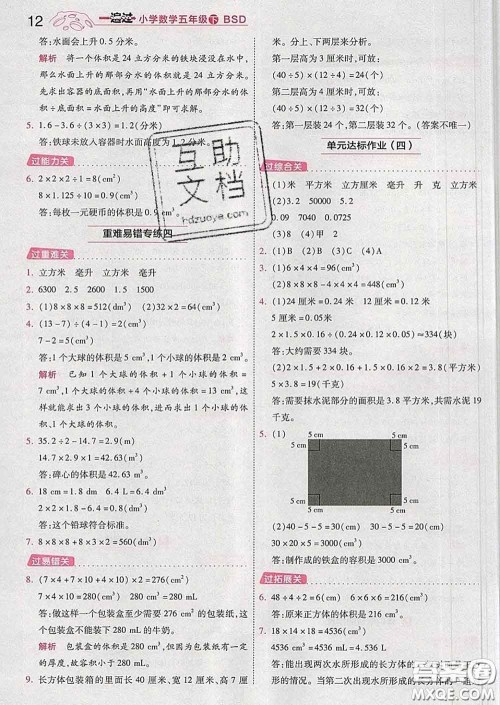 12 一遍过 小学数学五年级下 BSD
答:水面会上升 0.5 分米。
解析 将一个体积是 24 立方分米的铁块浸没在水中,
那么水面上升的那部分水的体积是 24 立方分米。
先求出容器的底面积,再根据“上升的那部分水的体
积÷底面积=上升的水面的高度”即可求出。
5. 1.6-3.6÷(3×3)=1.2(分米)
答:铁球未放入容器时水面高 1.2 分米。
过能力关
6. 2×2×2÷1=8(cm³)
8×1.125÷10=0.9(cm³)
答:每枚一元硬币的体积是 0.9 cm³。
重难易错专练四
过重难关
1. 立方米 毫升 立方分米 毫升
2. 6300 2.5 2.6 1.5 1500
3. (1)8×8×8=512(dm³)
4. (13-7)÷(4-1)=2(cm³)
7-2=5(cm³)
答:1 个大球的体积是 5 cm³,1 个小球的体积是 2 cm³。
解析 已知 1 个大球的体积+1 个小球的体积=
7 cm³,1 个大球的体积+4 个小球的体积=13 cm³,
由此可知 3 个小球的体积是 13-7=6(cm³),这样就
可以求出 1 个小球的体积,进而求出 1 个大球的
体积。
5. 35.2÷2-14.7=2.9(m)
14.7×2.9×1=42.63(m³)
答:碑心的体积是 42.63 m³。
6. 18 cm=1.8 dm 600 mL=0.6 L
2×2×1.8-6.6=0.6(L)
答:这个铅球符合标准。
7. 8×8×8+8×3×2=560(dm³)
过易错关
8. (7×4+7×10+4×10)×2=276(cm²)
7×4×10=280(cm³) 280 cm³=280 mL
答:做这样一个包装盒至少需要 276 cm² 的包装纸,这
个包装盒不能装下 280 mL 的牛奶。
解析 包装盒的体积是 280 cm³,但是因为包装纸有
一定的厚度,故此包装盒不能装下 280 mL 的牛奶。
9. 长方体包装箱的里面长 40 厘米,宽 12 厘米,高 7 厘
第一层高 4 厘米时,可放:
(40÷5)×(12÷4)=24(个)
第二层高为 3 厘米时,可放:
(40÷5)×(12÷3)=32(个)
答:第一层装 24 个,第二层装 32 个。(答案不唯一)
单元达标作业(四)
过综合关
1. (1)米 平方米 立方厘米 毫升 升 克 立方米
(2)3.2 50000 5.2
0.09 7040 0.0725
2. (1)B (2)A (3)C (4)D
3. (1)6×4×4=96(cm³)
(2)8×6×(5+4)=432(cm³)
4. (1)24 厘米=0.24 米 11.5 厘米=0.115 米
5 厘米=0.05 米
2×1.5×0.16÷(0.24×0.12×0.05)≈334(块)
答:大约需要 334 块。
(2)2×1.5+2×0.16×2+1.5×0.16=3.8(平方米)
5×3.8=19(千克)
答:需要抹水泥部分的面积是 3.8 平方米,共需水泥 19
千克。
5. (1)
5 cm 5 cm
5 cm 5 cm
5 cm 5 cm
5 cm 5 cm
(2)40-5-5=30(cm) 30-5-5=20(cm)
30×20×5=3000(cm³)
答:制作成的铁盒的容积是 3000 cm³。
过拓展关
6. 48÷4÷2=6(cm) 6×6×6=216(cm³)
答:原来正方体的体积是 216 cm³。
7. 18×14×18=4536(cm³)
4536 cm³=4536 mL
答:能出现两次水所形成的长方体的
形的情况。当第二次出现水所形成的长方体的一组
互助文档
hdzuoye.com
MXQE.COM